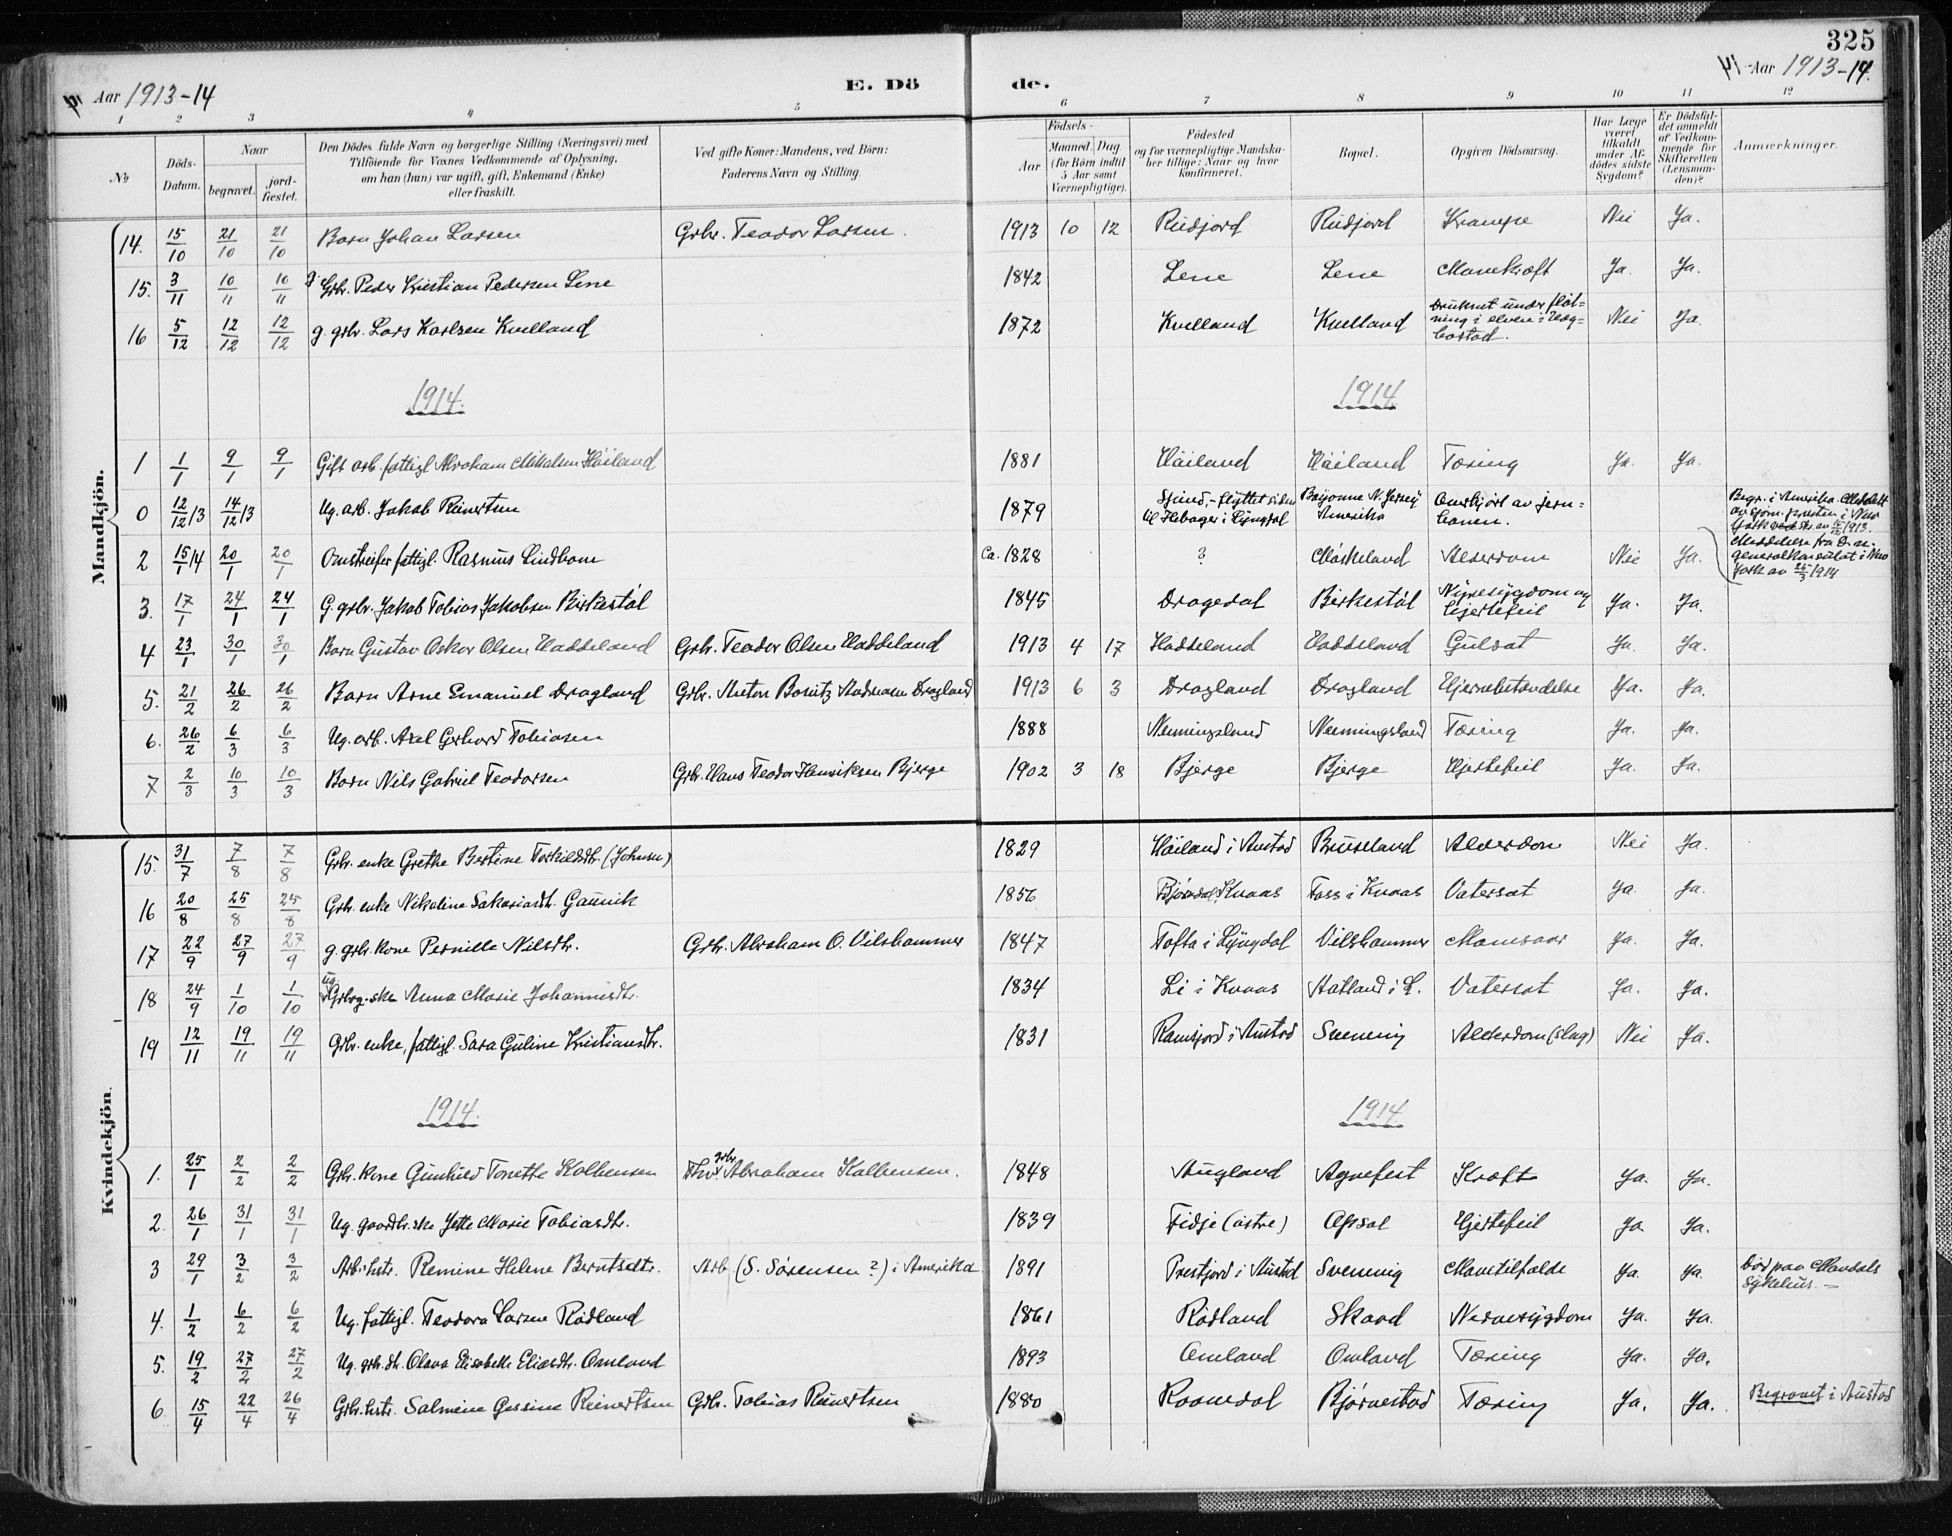 325
Aar 1913-14 E. Dö de. Aar 1913-14.
1 2 3 4 5 6 7 8 9 10 11 12
№ Döds-Datum. Naar begravet. jord-fæstet. Den Dödes fulde Navn og borgerlige Stilling (Næringsvei) med Tilföiende for Voxnes Vedkommende af Oplysning, om han (hun) var ugift, gift, Enkemand (Enke) eller fraskilt. Ved gifte Koner: Mandens, ved Börn: Faderens Navn og Stilling. Födsels- Aar Maaned. Dag (for Börn indtil 5 Aar samt Værnepligtige). Födested og for værnepligtige Mandskaber tillige: Naar og hvor konfirmeret. Bopæl. Opgiven Dödsaarsag. Har Læge været tilkaldt under Afdödes sidste Sygdom? Er Dödsfaldet anmeldt af Vedkommende for Skifteretten (Lensmanden)? Anmærkninger.
Mandkjön.
14. 15/10 21/10 21/10 Barn Johan Larsen Grbr. Teodor Larsen. 1913 10 12 Rudjord Rudjord Krampe Nei Ja.
15. 3/11 10/11 10/11 Grbr. Peder Kristian Pedersen Lene 1842 Lene Lene Mavekræft Ja. Ja.
16 5/12 12/12 12/12 g. grbr. Lars Karlsen Kvelland 1872 Kvelland Kvelland Druknet under fløtning i elven i Hægbostad. Nei Ja.
1914. 1914
1 1/1 9/1 9/1 Gift arb. fattigl. Abraham Mikalsen Høiland 1881 Høiland Høiland Tæring Ja. Ja.
0 12/12 13 14/12 13 Ug. arb. Jakob Reinertsen 1879 Spind, - flyttet siden til Hebager i Lyngdal Bayonne N. Jersey Amerika Overkjørt av jernbanen. Begr. i Amerika. Meddelt av sjøm. presten i New York
Meddelelse fra D. n. generalkonsulat i New York av 25/3 1914
2 15/1 14 20/1 20/1 Omstreifer fattigl. Rasmus Lindbom Ca. 1828 ? Møskeland Alderdom Nei Ja.
3. 17/1 24/1 24/1 G. grbr. Jakob Tobias Jakobsen Birkestøl 1845 Dragedal Birkestøl Nyresygdom og hjertefeil Ja. Ja.
4 23/1 30/1 30/1 Barn Gustav Oskar Olsen Haddeland Grbr. Teodor Olsen Haddeland 1913 4 17 Haddeland Haddeland Gulsot Ja. Ja.
5. 21/2 26/2 26/2 Barn Arne Emanuel Dragland Grbr. Anton Bonitz Andreasen Dragland 1913 6 3 Dragland Dragland Hjernebetændelse Ja. Ja.
6. 26/2 6/3 6/3 Ug. arb. Axel Gerhard Tobiasen 1888 Nenningsland Nenningsland Tæring Ja. Ja.
7 2/3 10/3 10/3 Barn Nils Gabriel Teodorsen Grbr. Hans Teodor Henriksen Bjerge 1902 3 18 Bjerge Bjerge Hjertefeil Ja. Ja.
Kvindekjön.
15. 31/7 7/8 7/8 Grbr. enke Grethe Bertine Torkildsdtr. (Johnsen) 1829 Høiland i Austad Bruseland Alderdom Nei Ja.
16 20/8 25/8 25/8 Grbr. enke Nikoline Sakariasdtr. Gaunik 1856 Bjørndal, Kvaas Foss i Kvaas Vatersot Ja. Ja.
17 22/9 27/9 27/9 g. grbr. kone Pernille Nilsdtr. Grbr. Abraham O. Vilshammer 1847 Tofta i Lyngdal Vilshammer Mavesaar Ja. Ja.
18 24/9 1/10 1/10 Ug. Anna Marie Johannesdtr. 1834 Li i Kvaas Aatland i L. Vatersot Ja. Ja.
19 12/11 19/11 19/11 Grbr. enke, fattigl. Sara Guline Kristiansdtr. 1831 Ramsjord i Austad Svenevig Alderdom (slag) Nei Ja.
1914. 1914
1. 25/1 2/2 2/2 Grbr. kone Gunhild Tonette Kolbensen grbr. Abraham Kolbensen. 1848 Augland Agnefest Kræft Ja. Ja.
2. 26/1 31/1 31/1 Ug. gaardbr.ske Jette Marie Tobiasdtr. 1839 Fidje (østre) Opsal Hjertefeil Ja Ja.
3 29/1 3/2 3/2 Arb. hstr. Remine Helene Berntsdtr. Arb. (S. Sørensen?) i Amerika 1891 Prestjord i Austad Svenevig Mavetilfælde Ja. Ja. Død paa Mandals sykehus. -
4. 1/2 6/2 6/2 Ug. fattigl. Teodora Larsen Rødland 1861 Rødland Skaad Nervesygdom Ja. Ja.
5. 19/2 27/2 27/2 Ug. grbr. dtr. Olava Elisabeth Eliasdtr. Omland 1893 Omland Omland Tæring Ja. Ja.
6. 15/4 22/4 26/4 Grbr. hstr. Salmine Gessine Reinertsen Grbr. Tobias Reinertsen 1880 Rosnedal Bjørnestad Tæring Ja. Ja. Begravet i Austad